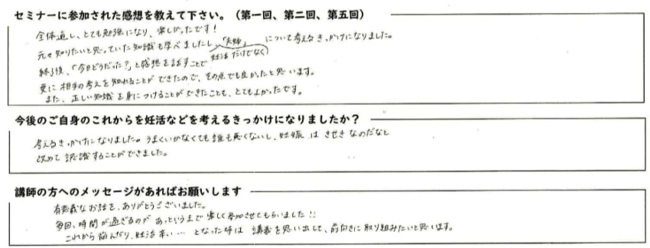 セミナーに参加された感想を教えて下さい。（第一回、第二回、第五回）
全体通し、とても勉強になり、楽しかったです！
元々知りたいと思っていた知識も学べましたし、「夫婦」について考えるきっかけになりました。
（妊活だけでなく）
終了後、「今日どうだった？」と感想を話すことで
更に相手の考えを知れることができたので、その点でも良かったと思います。
また、正しい知識を身につけることができたことも、とてもよかったです。
今後のご自身のこれからを妊活などを考えるきっかけになりましたか？
考えるきっかけになりました。うまくいかなくても誰も悪くないし、妊娠はきせきなのだなと
改めて認識することができました。
講師の方へのメッセージがあればお願いします
有意義なお話を、ありがとうございました。
毎回、時間が過ぎるのがあっというまで楽しく参加させてもらいました!!
これから悩んだり、妊活辛い…となった時は講義を思い出して、前向きに取り組みたいと思います。